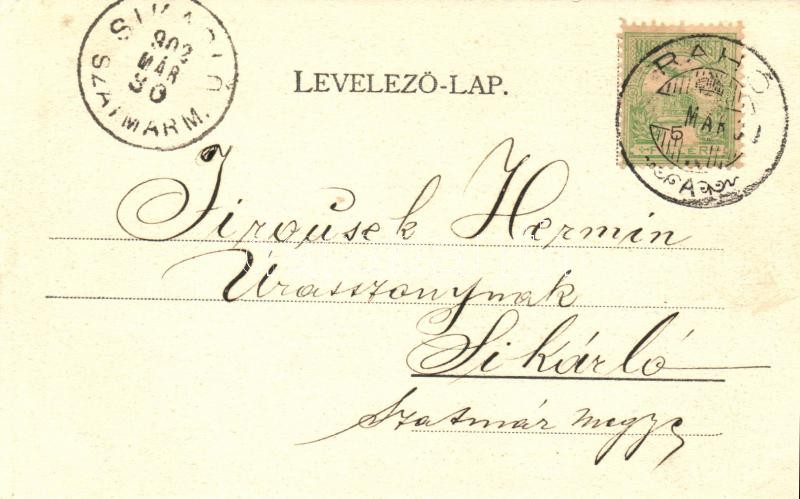 SIKÁRLÓ
902
MÁR
30
SZATMÁR M.
LEVELEZÖ-LAP.
RAHÓ
MÁR
5
A
Jirousek Hermin
Úrasszonynak
Sikárló
Szatmár megye